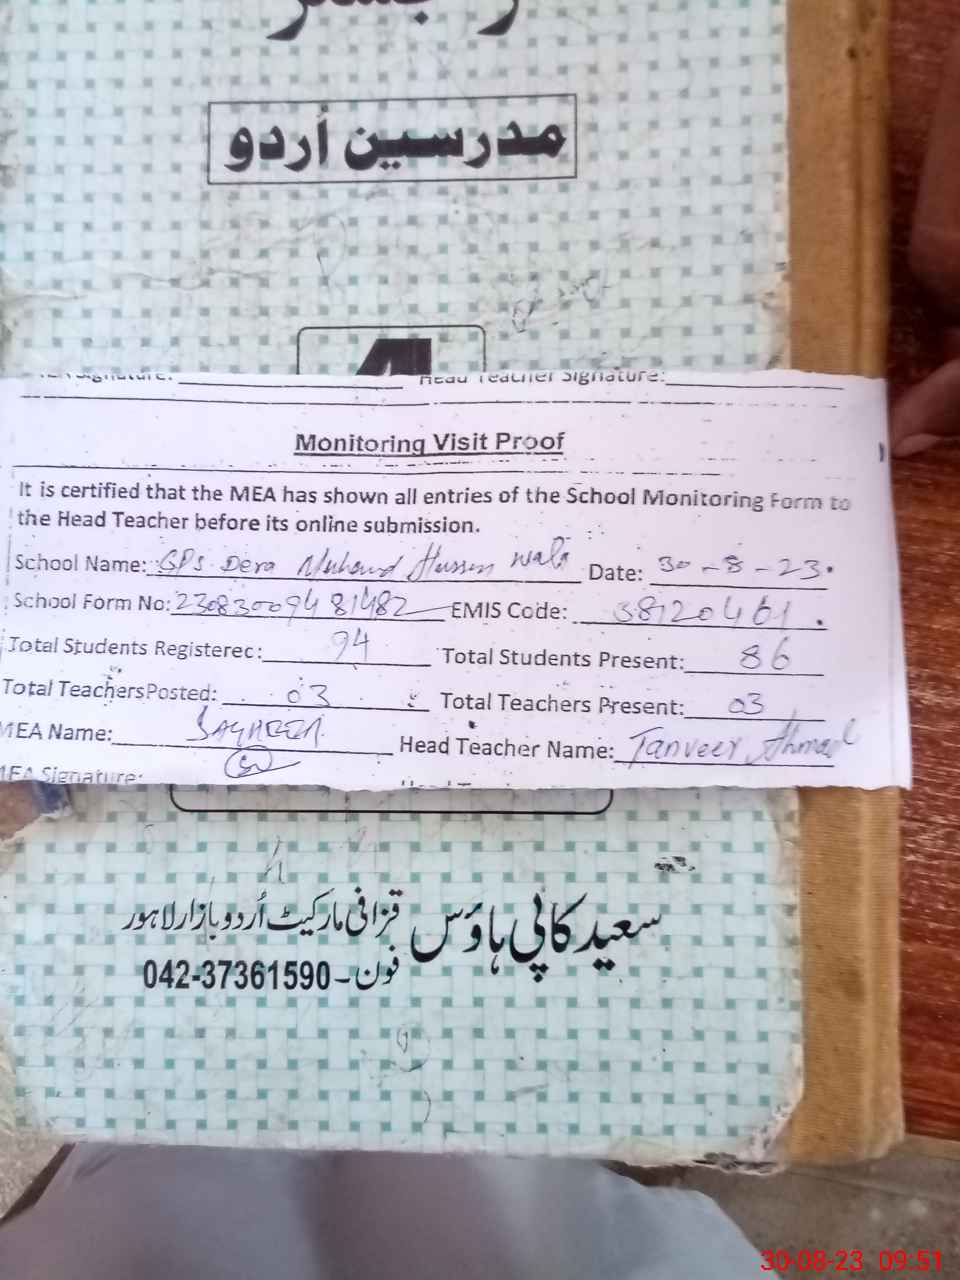 مدرسین اُردو
4
Head Teacher Signature:
Monitoring Visit Proof
It is certified that the MEA has shown all entries of the School Monitoring Form to
the Head Teacher before its online submission.
School Name: GPS Dera Wala Date: 30-8-23.
School Form No: 2308300948 1482 EMIS Code: 38120461.
Total Students Registerec: 94 Total Students Present: 86
Total TeachersPosted: 03 Total Teachers Present: 03
MEA Name: Head Teacher Name: Tanveer Ahmad
MEA Signature:
سعید کاپی ہاؤس قزافی مارکیٹ اُردو بازار لاہور
فون - 042-37361590
30-08-23 09:51